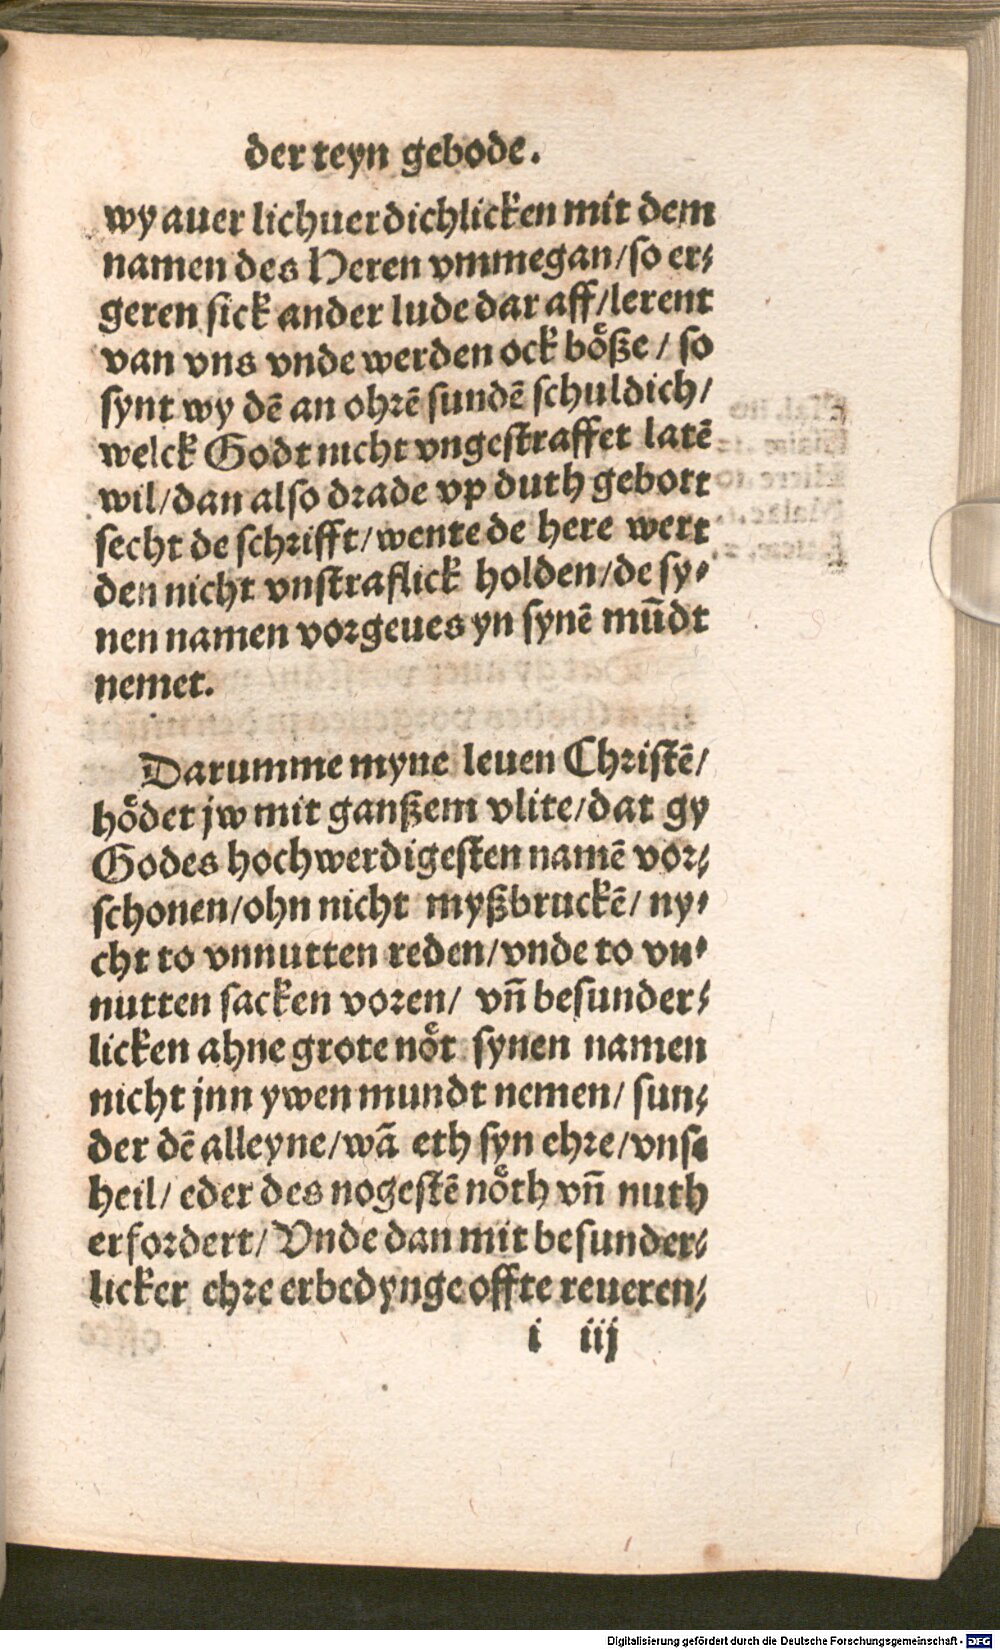 der teyn gebode.
wy auer lichuerdichlicken mit dem
namen des Heren vmmegan/so er⸗
geren sick ander lude dar aff/lerent
van vns vnde werden ock boͤße/ so
synt wy dē an ohrē sundē schuldich/
welck Godt nicht vngestraffet latē
wil/dan also drade vp duth gebott
secht de schrifft/wente de here wert
den nicht vnstraflick holden/de sy⸗
nen namen vorgeues yn synē mūdt
nemet.
Darumme myne leuen Christē/
hoͤdet jw mit ganßem vlite/dat gy
Godes hochwerdigesten namē vor⸗
schonen/ohn nicht myßbruckē/ ny⸗
cht to vnnutten reden/vnde to vn⸗
nutten sacken voren/ vn̄ besunder⸗
licken ahne grote noͤt synen namen
nicht jnn ywen mundt nemen/ sun⸗
der dē alleyne/wā eth syn ehre/vnse
heil/ eder des negestē noͤth vn̄ nuth
erfordert/Vnde dan mit besunder⸗
licker ehre erbedynge offte reueren⸗
i iij
Digitalisierung gefördert durch die Deutsche Forschungsgemeinschaft - DFG